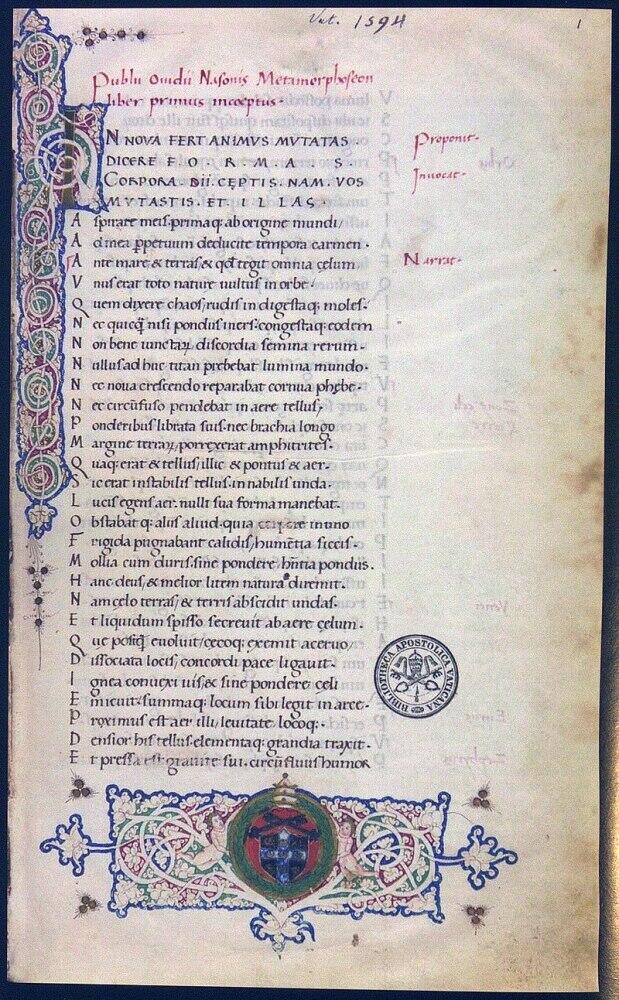 Vat. 1594
1
Publii Ouidii Nasonis Metamorphoseon
liber primus incoeptus·
IN NOVA FERT ANIMVS MVTATAS
DICERE FORMAS
CORPORA DII CEPTIS. NAM. VOS
MVTASTIS. ET ILLAS.
Proponit·
Inuocat·
Aspirate meis. primaq; ab origine mundi
Ad mea ꝑpetuum deducite tempora carmen·
Ante mare & terras & qđ tegit omnia çelum
Narrat·
Vnus erat toto nature uultus in orbe·
Quem dixere chaos, rudis indigestaq; moles·
Nec quicq̃ nisi pondus iners· congestaq; eodem
Non bene iunctaꝝ discordia semina rerum·
Nullus adhuc titan prebebat lumina mundo·
Nec noua crescendo reparabat cornua phębe·
Nec circũfuso pendebat in aere tellus,
Ponderibus librata suis. nec brachia longo
Margine terraꝝ porrexerat amphitrites·
Quaq; erat & tellus, illic & pontus & aer·
Sic erat instabilis tellus. innabilis unda.
Lucis egens aer. nulli sua forma manebat.
Obstabatq; aliis aliud. quia corpore in uno
Frigida pugnabant calidis, humẽtia siccis·
Mollia cum duris. sine pondere hñtia pondus.
Hanc deus, & melior litem natura diremit.
Nam çelo terras, & terris abscidit undas·
Et liquidum spisso secreuit ab aere çelum·
Que postq̃ euoluit, cecoq; exemit aceruo,
Dissociata locis, concordi pace ligauit·
Ignea conuexi uis, & sine pondere çeli
Emicuit. summaq; locum sibi legit in arce·
Proximus est aer illi, leuitate locoq;·
Densior his tellus. elementaq; grandia traxit·
Et pressa est grauitate sui. circũfluus humor
BIBLIOTHECA APOSTOLICA VATICANA